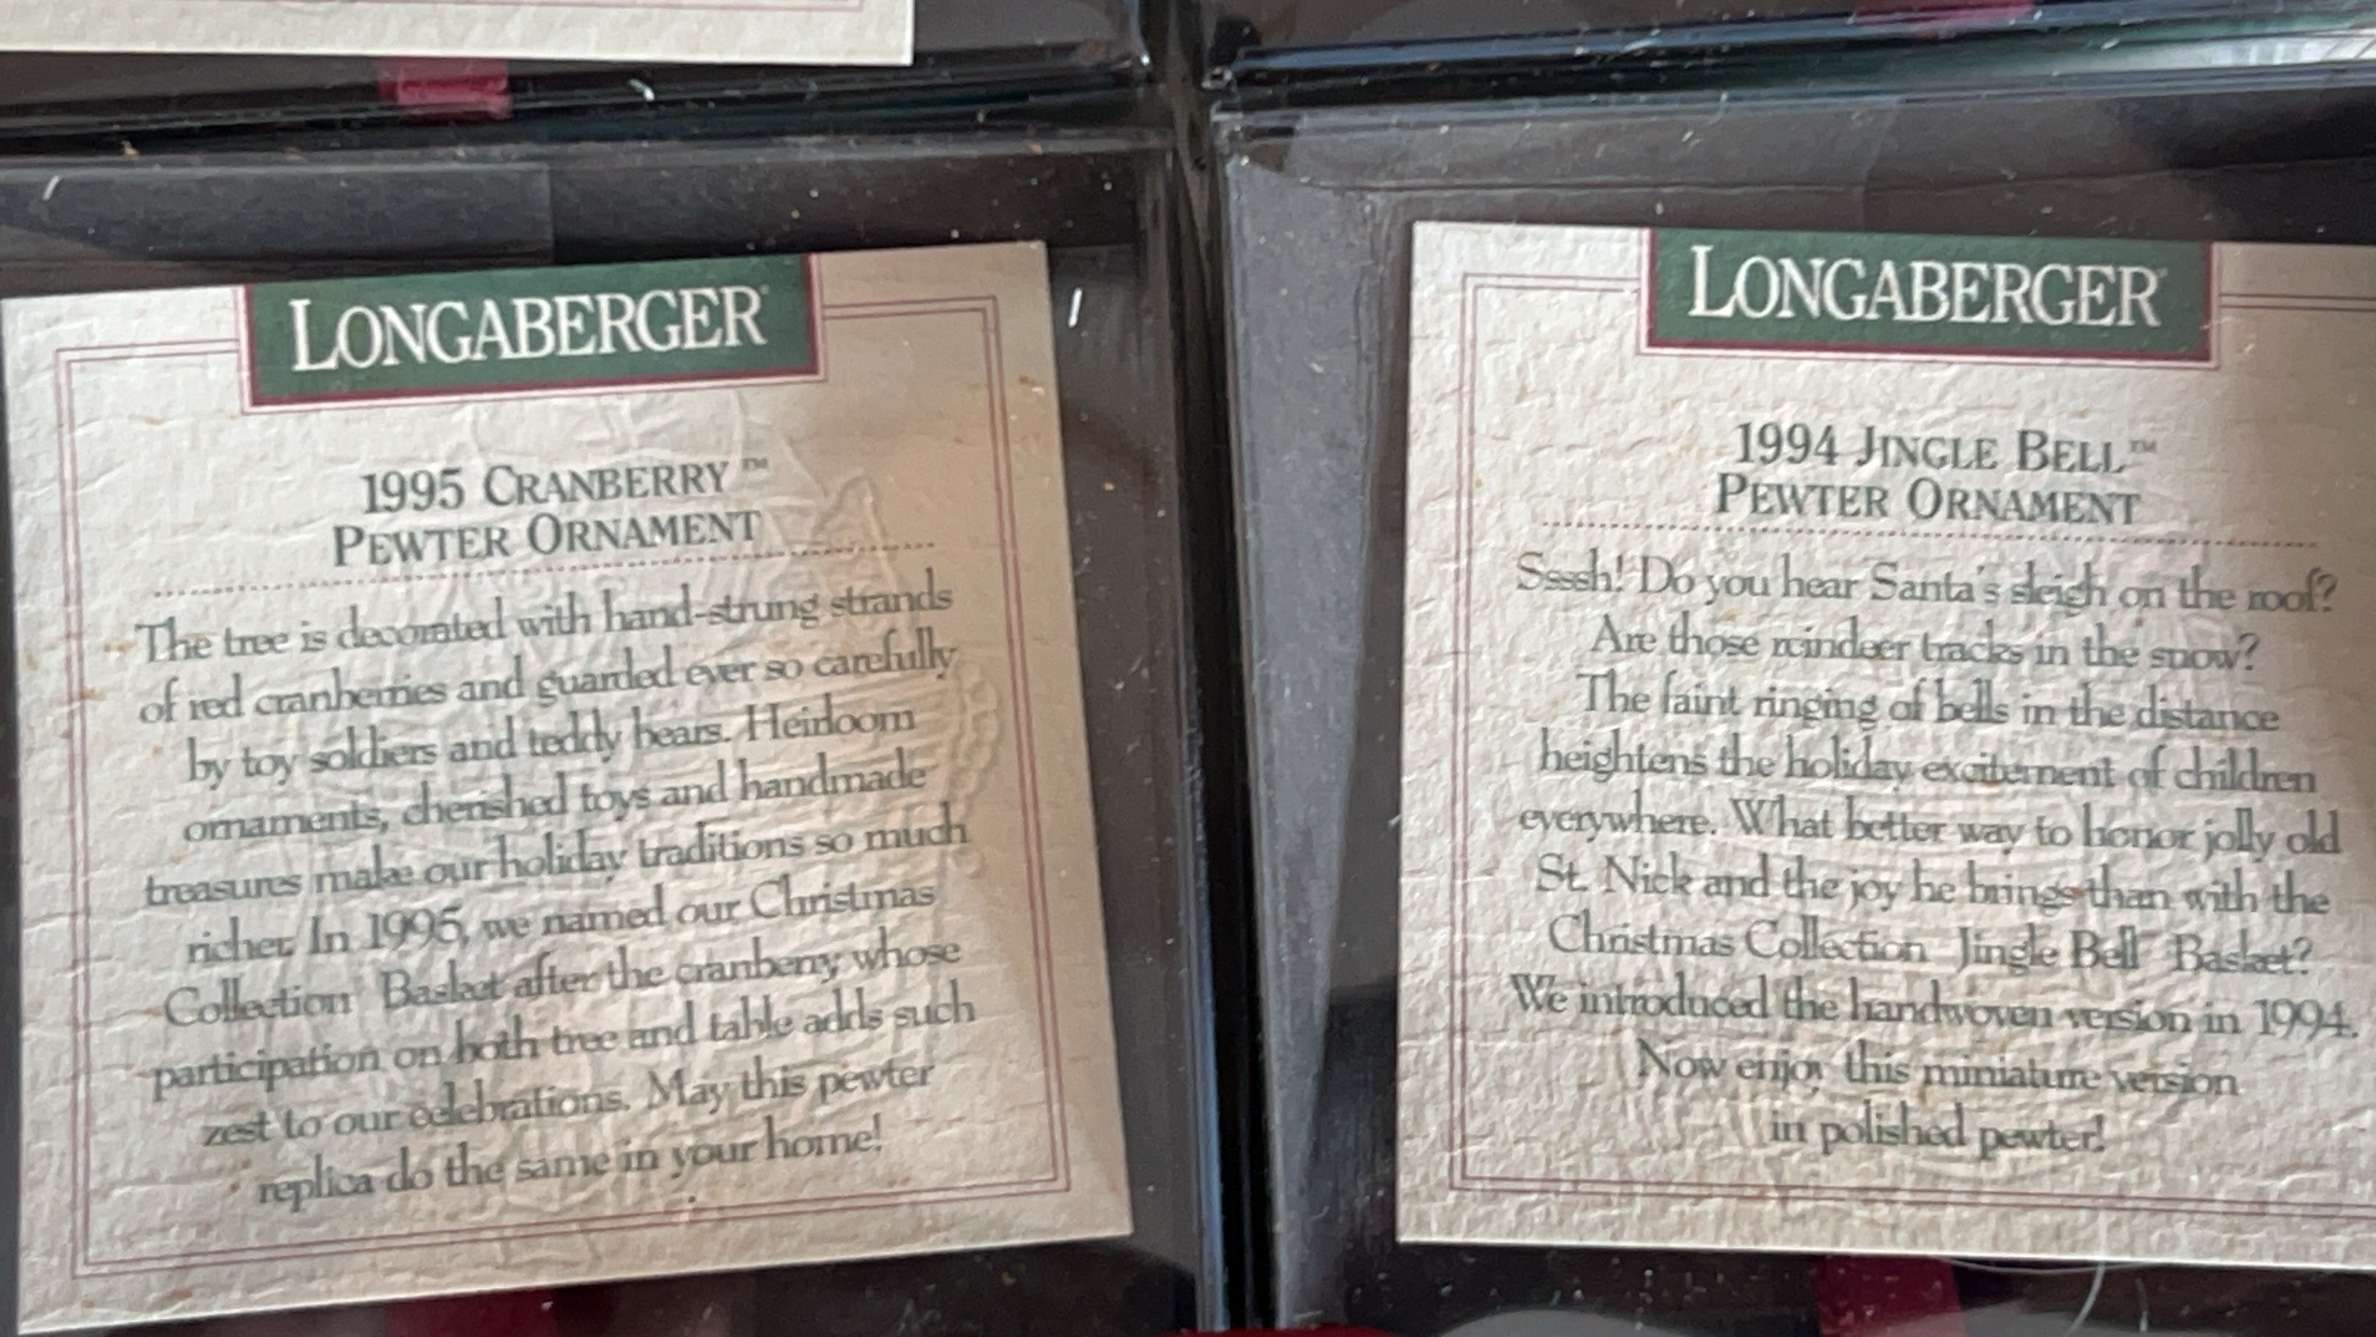 LONGABERGER
1995 CRANBERRY™
PEWTER ORNAMENT
The tree is decorated with hand-strung strands
of red cranberries and guarded ever so carefully
by toy soldiers and teddy bears. Heirloom
ornaments, cherished toys and handmade
treasures make our holiday traditions so much
richer. In 1995, we named our Christmas
Collection Basket after the cranberry whose
participation on both tree and table adds such
zest to our celebrations. May this pewter
replica do the same in your home!
LONGABERGER
1994 JINGLE BELL™
PEWTER ORNAMENT
Ssssh! Do you hear Santa's sleigh on the roof?
Are those reindeer tracks in the snow?
The faint ringing of bells in the distance
heightens the holiday excitement of children
everywhere. What better way to honor jolly old
St. Nick and the joy he brings than with the
Christmas Collection Jingle Bell Basket?
We introduced the handwoven version in 1994.
Now enjoy this miniature version
in polished pewter!